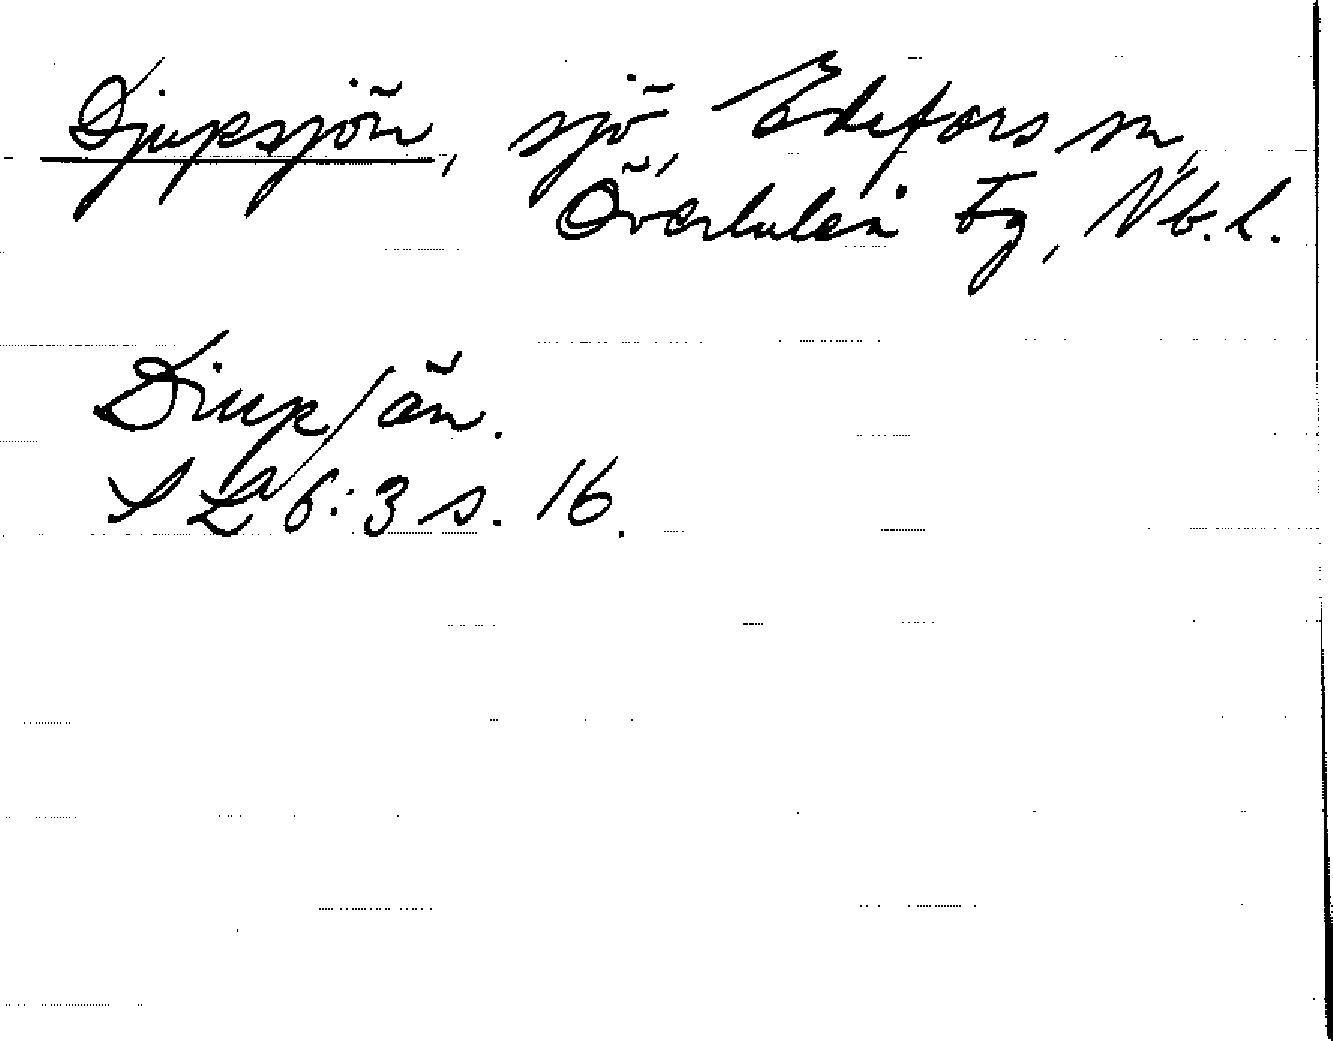 Djupsjön, sjö, Edefors sn,
Överluleå Tg, Nb. l.
Diupsiön.
S LA 6:3 s. 16.